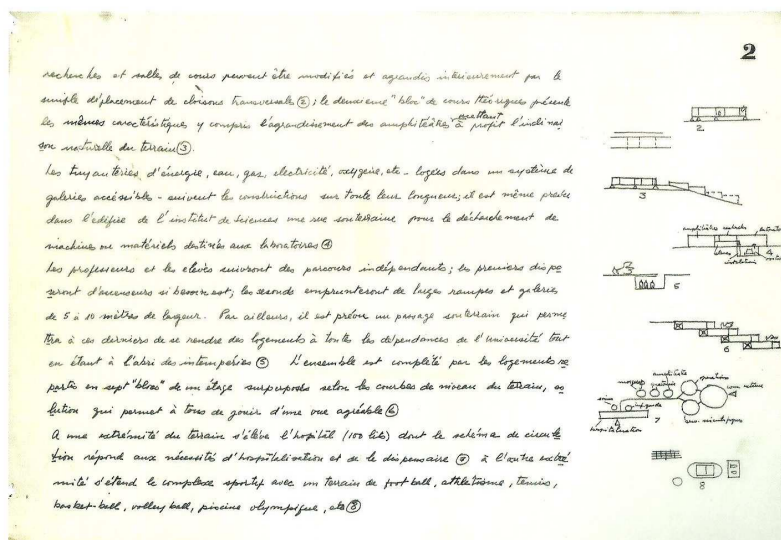 2
recherches et salles de cours peuvent être modifiés et agrandis intérieurement par le
simple déplacement de cloisons transversales ②; le deuxième "bloc" de cours théoriques présente
les mêmes caractéristiques y compris l'agrandissement des amphithéâtres mettant à profit l'inclinai
son naturelle du terrain ③.
Les tuyauteries d'énergie, eau, gaz, electricité, oxygène, etc - logées dans un système de
galeries accéssibles - suivent les constructions sur toute leur longueur; il est même prévu
dans l'édifice de l'institut de Sciences une rue souterraine pour le déchardement de
machines ou matériels destinés aux laboratoires ④
Les professeurs et les elèves suivront des parcours indépendants; les premiers dispo
seront d'ascenseurs si besoin est; les seconds emprunteront de larges rampes et galeries
de 5 à 10 mètres de largeur. Par ailleurs, il est prévu un passage souterrain qui perme
ttra à ces derniers de se rendre des logements à toutes les dépendances de l'université tout
en étant à l'abri des intempéries ⑤ L'ensemble est complété par les logements re
partis en sept "blocs" de un étage surperposés selon les courbes de niveau du terrain, so
lution qui permet à tous de jouir d'une vue agréable ⑥
A une extrémité du terrain s'élève l'hôpital (100 lits) dont le schéma de circula
tion répond aux nécessité d'hospitalisation et de le dispensaire ⑦ à l'autre extré
mité s'étend le complexe sportif avec un terrain de foot ball, athlétisme, tennis,
basket-ball, volley ball, piscine olympique, etc ⑧
2
3
amphithéâtres
4
5
6
7
hospitalisation
8